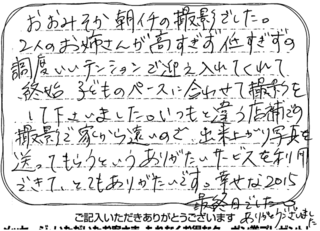 おおみそか朝イチの撮影でした。
2人のお姉さんが高すぎず低すぎずの
調度いいテンションで迎え入れてくれて
終始 子どものペースに合わせて撮影を
して下さいました。いつもと違う店舗での
撮影で家から遠いので、出来上がり写真を
送ってもらうというありがたいサービスを利用
できて、とてもありがたいです。幸せな2015
最終日でした
ありがとうございました
ご記入いただきありがとうございます